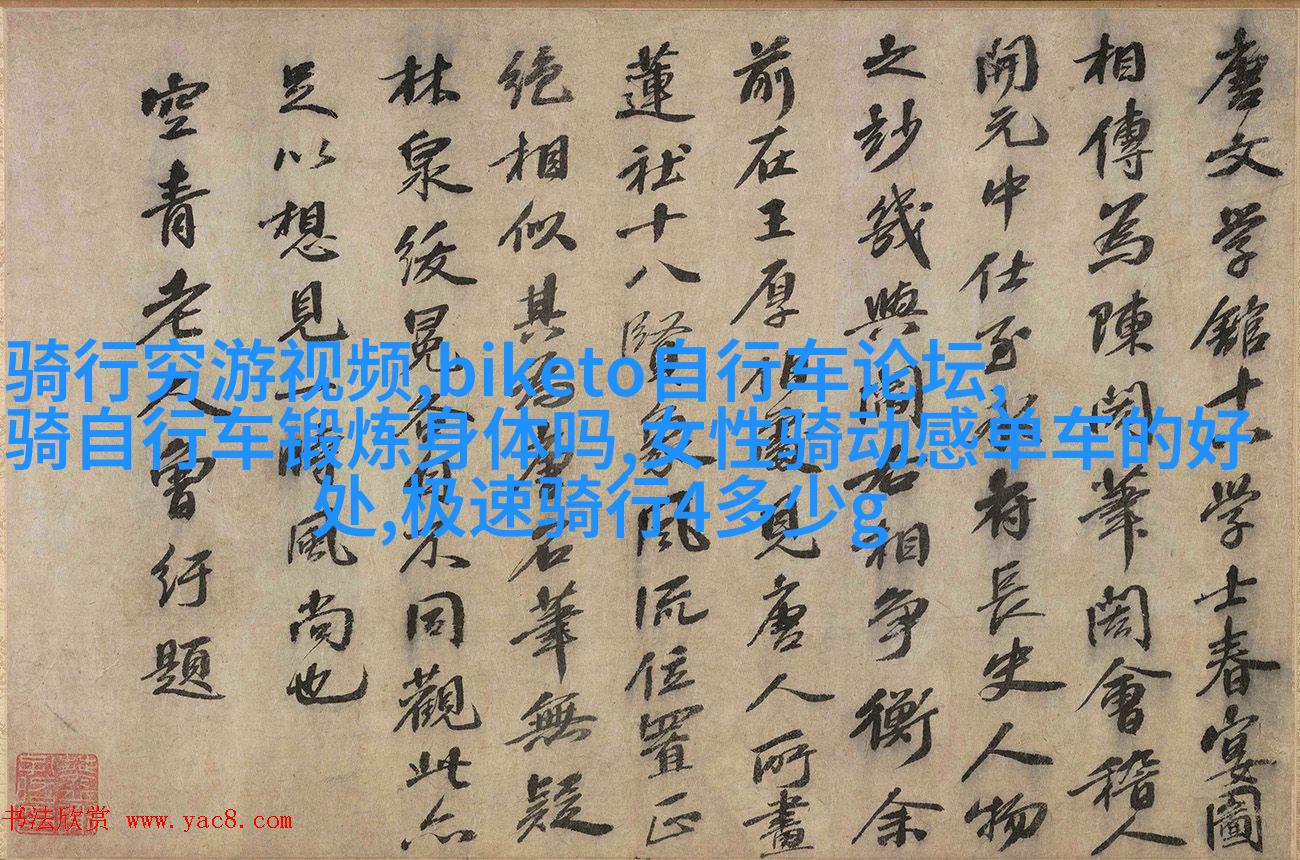 唐文学館十八学士春宴圖
相傳為陳閎筆閎會稽人
開元中仕至府長史人物
之妙幾與閻右相争衡余
前在王厚見唐人所畫
蓮社十八賢象風流位置正
絶相似其為唐名筆無疑
林泉绥冕各不同觀此亦
足以想見一時風尚也
空青老人曾紆題
骑行穷游视频,biketo自行车论坛,
骑自行车锻炼身体吗,女性骑动感单车的好
处,极速骑行4多少g
书法欣赏 www.yac8.com